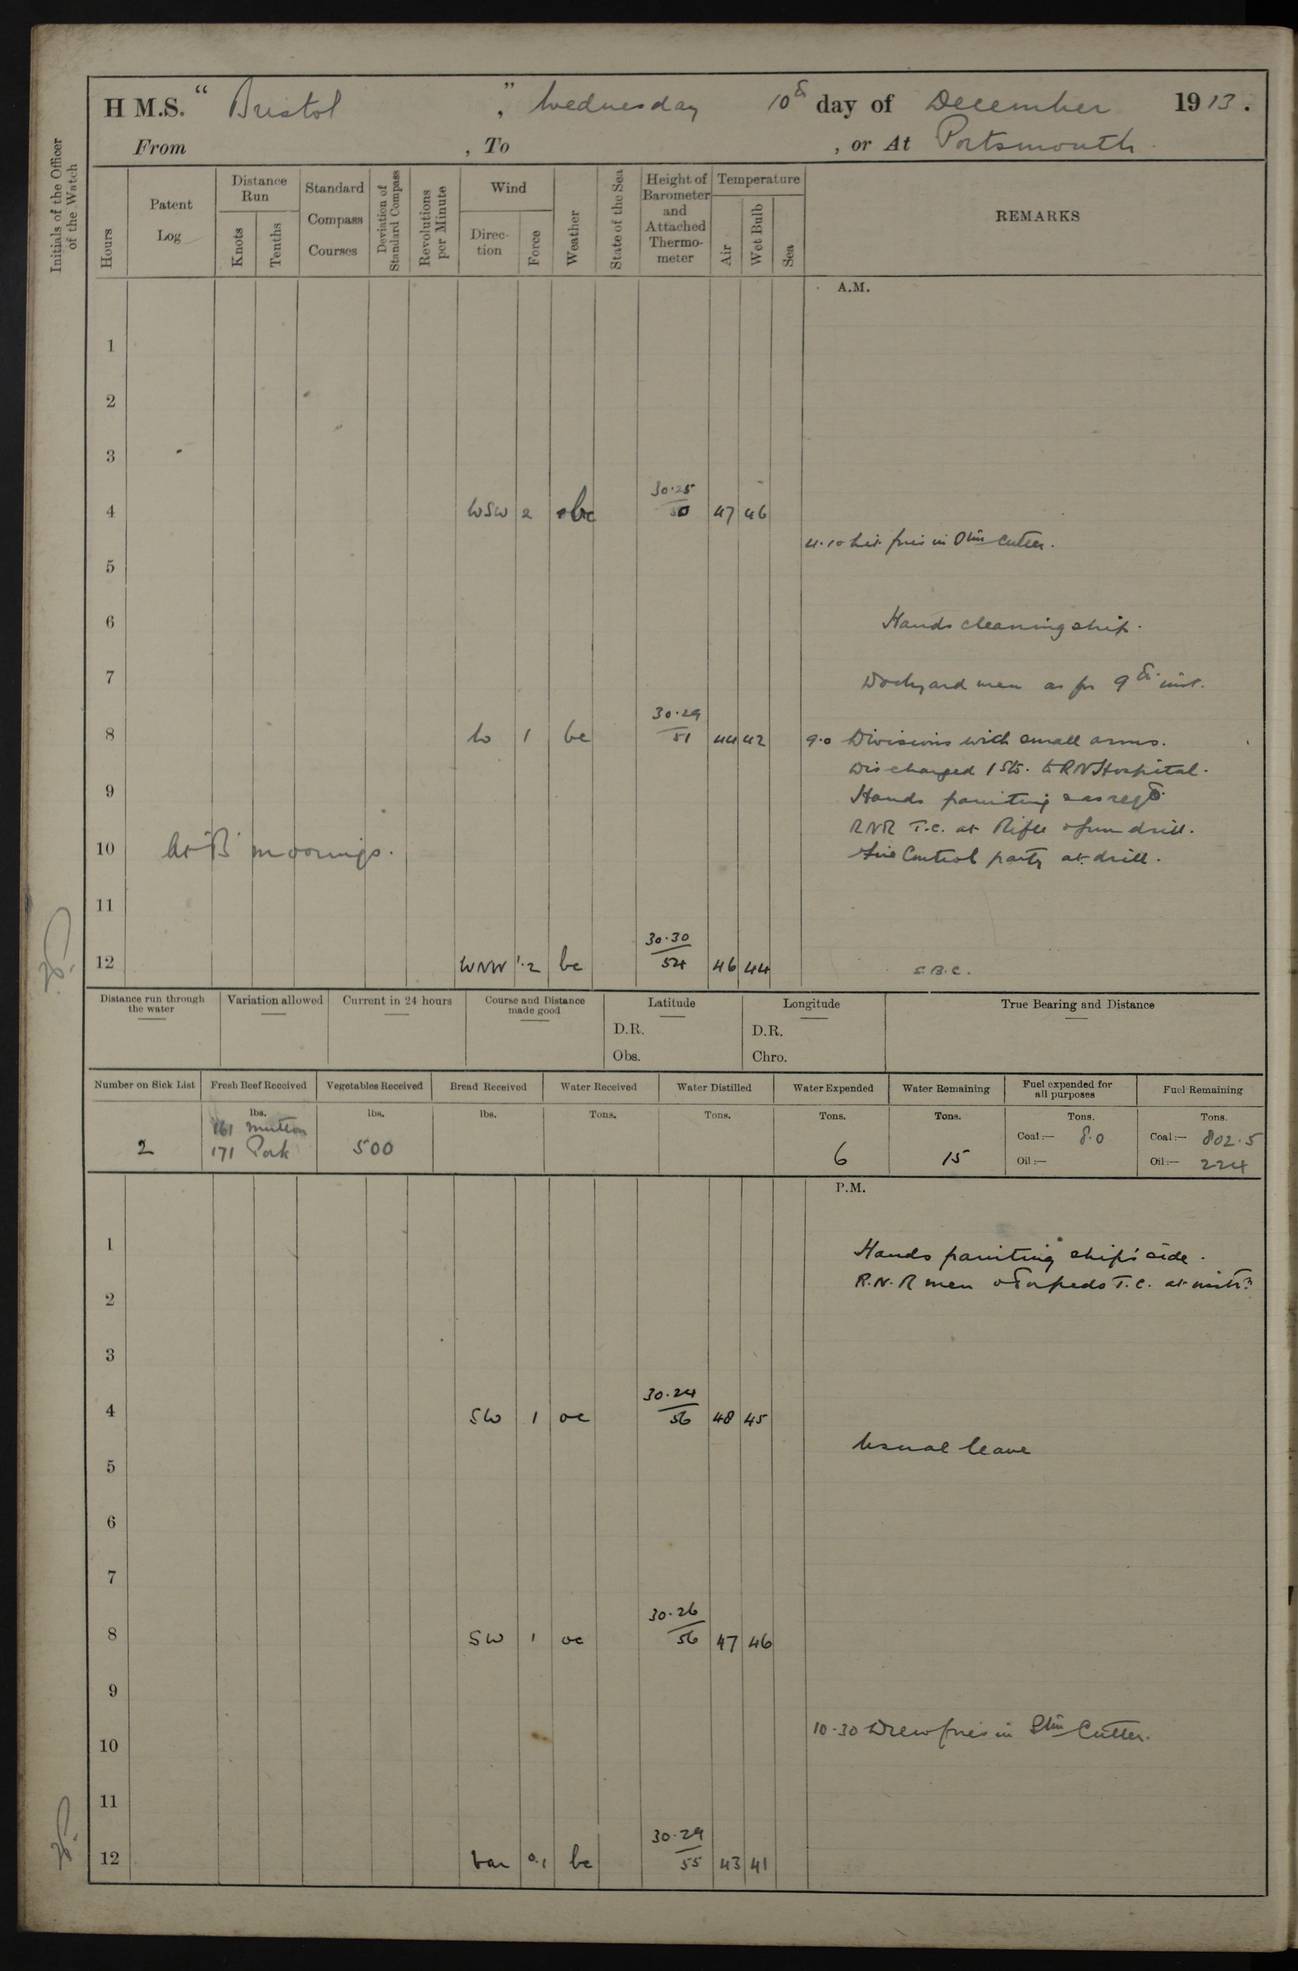 H.M.S. “ Bristol ”, Wednesday 10th day of December 1913.
From , To , or At Portsmouth.
Initials of the Officer of the Watch
Hours
Patent Log
Distance Run
Knots
Tenths
Standard Compass Courses
Deviation of Standard Compass
Revolutions per Minute
Wind
Direc- tion
Force
Weather
State of the Sea
Height of Barometer and Attached Thermo- meter
Temperature
Air
Wet Bulb
Sea
REMARKS
A.M.
1
2
3
4 WSW 2 bc 30.25/50 47 46
4.10 Lit fires in Stm Cutter.
5
6 Hands cleaning ship.
7 Dockyard men as for 9th inst.
8 W 1 bc 30.29/51 44 42 9.0 Divisions with small arms.
Discharged 1 Sto. to RN Hospital.
9 Hands painting & as reqd.
RNR T.C. at Rifle & Gun drill.
10 At 'B' moorings. Fire Control party at drill.
11
12 WNW 1.2 bc 30.30/54 46 44
Distance run through the water
Variation allowed
Current in 24 hours
Course and Distance made good
Latitude
D.R.
Obs.
Longitude
D.R.
Chro.
True Bearing and Distance
Number on Sick List
Fresh Beef Received
Vegetables Received
Bread Received
Water Received
Water Distilled
Water Expended
Water Remaining
Fuel expended for all purposes
Fuel Remaining
lbs. lbs. lbs. Tons. Tons. Tons. Tons. Tons. Tons.
161 mutton Coal:— 8.0 Coal:— 802.5
2 171 Pork 500 6 15 Oil:— Oil:— 224
P.M.
1 Hands painting ship's side.
R.N.R men & Torpedo T.C. at instn
2
3
4 SW 1 oc 30.24/56 48 45
Usual leave
5
6
7
8 SW 1 oc 30.26/56 47 46
9
10.30 Drew fires in Stm Cutter.
10
11
12 Var 0.1 bc 30.29/55 43 41